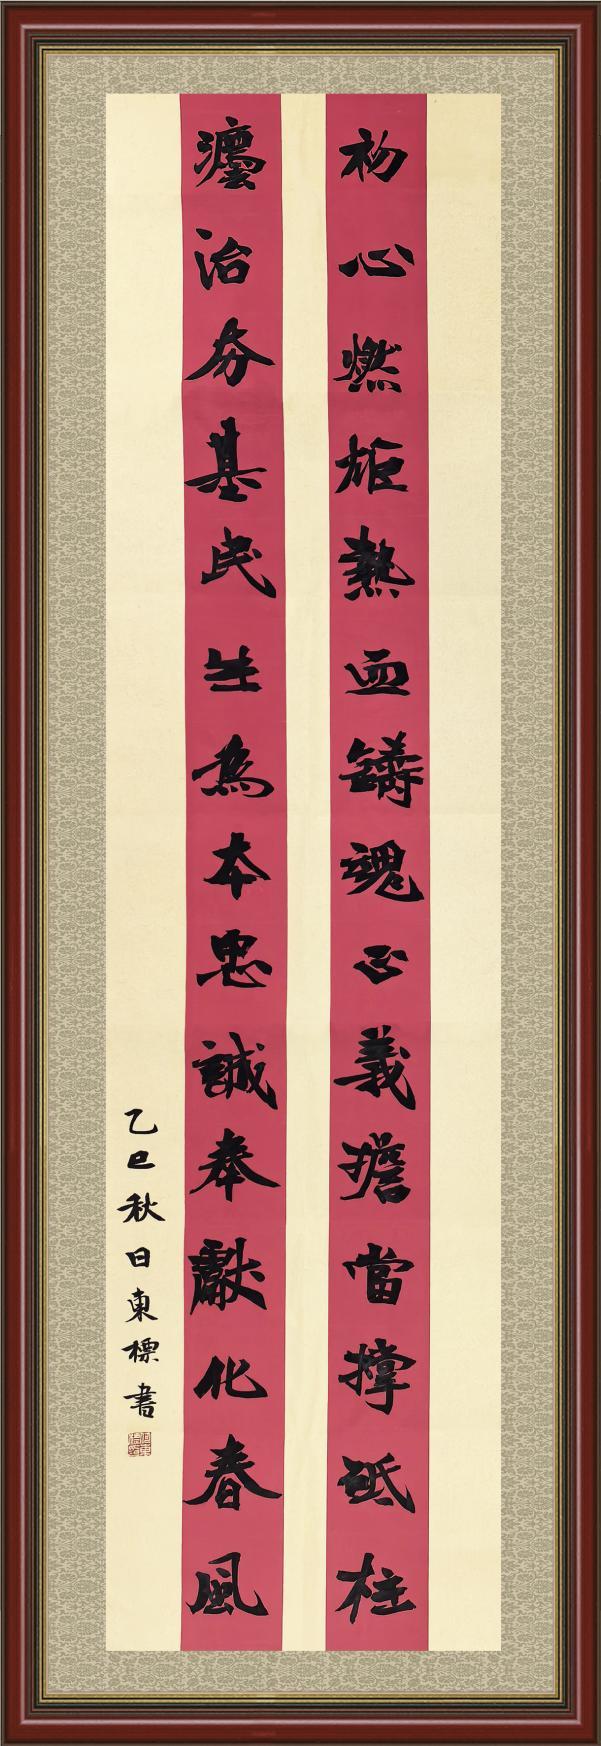 初心燃炬熱血鑄魂正義擔當撐砥柱
灋治夯基民生為本忠誠奉獻化春風
乙巳秋日東標書